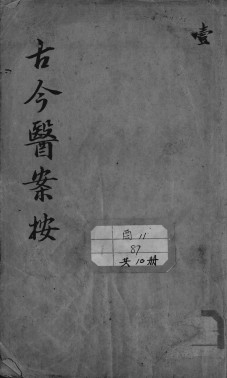 壹
古今醫案按
11
87
共10册